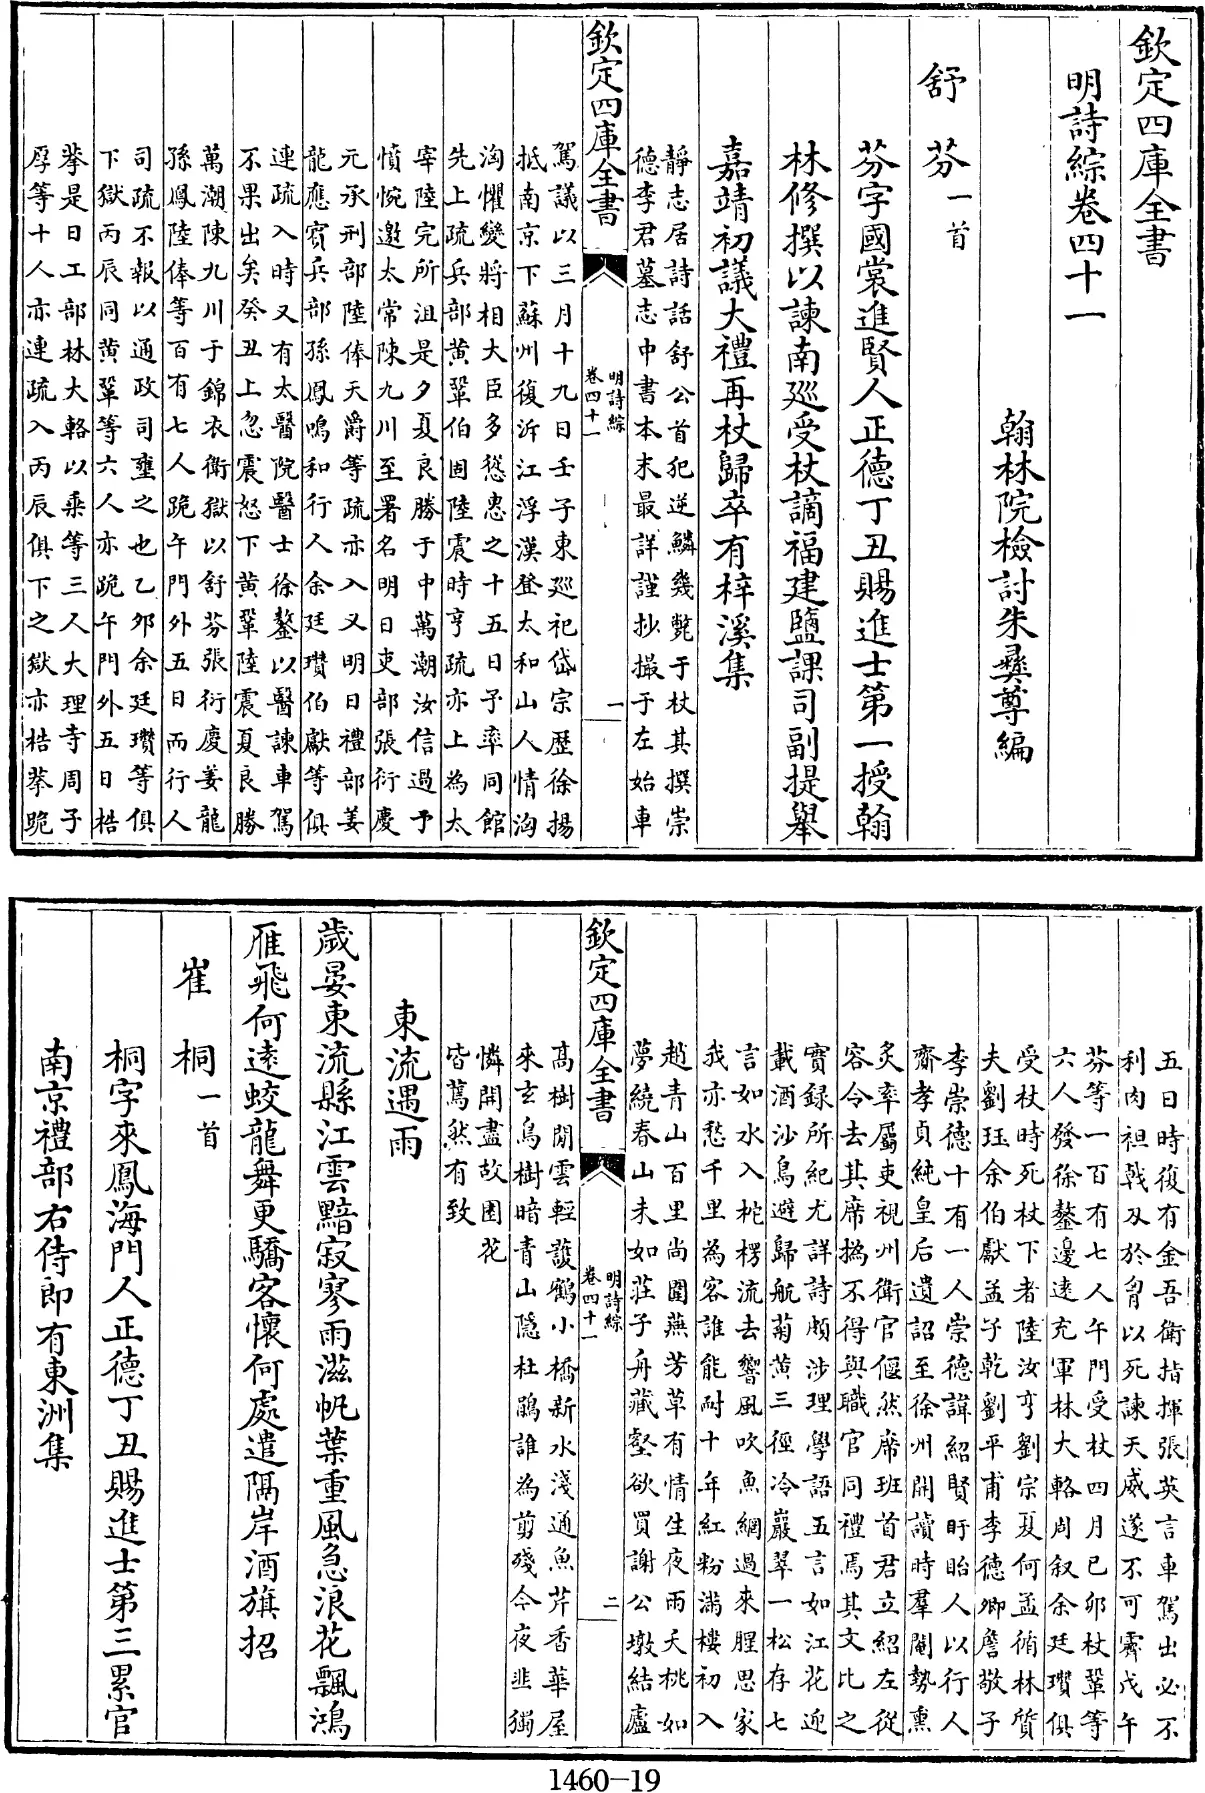 欽定四庫全書
明詩綜卷四十一
翰林院檢討朱彞尊編
舒芬一首
芬字國裳進賢人正德丁丑賜進士第一授翰
林修撰以諫南廵受杖謫福建鹽課司副提舉
嘉靖初議大禮再杖歸卒有梓溪集
靜志居詩話舒公首犯逆鱗幾斃于杖其撰崇
德李君墓志中書本末最詳謹抄撮于左始車
欽定四庫全書
明詩綜
卷四十一
一
駕議以三月十九日壬子東廵祀岱宗歴徐揚
抵南京下蘇州復泝江浮漢登太和山人情洶
洶懼變將相大臣多慫恿之十五日予率同館
先上疏兵部黄鞏伯固陸震時亨疏亦上為太
宰陸完所沮是夕夏良勝于中萬潮汝信過予
憤惋邀太常陳九川至署名明日吏部張衍慶
元承刑部陸俸天爵等疏亦入又明日禮部姜
龍應賓兵部孫鳳鳴和行人余廷瓚伯獻等俱
連疏入時又有太醫院醫士徐鏊以醫諫車駕
不果出矣癸丑上忽震怒下黄鞏陸震夏良勝
萬潮陳九川于錦衣衛獄以舒芬張衍慶姜龍
孫鳳陸俸等百有七人跪午門外五日而行人
司疏不報以通政司壅之也乙夘余廷瓚等俱
下獄丙辰同黄鞏等六人亦跪午門外五日梏
拲是日工部林大輅以乘等三人大理寺周子
厚等十人亦連疏入丙辰俱下之獄亦梏拲跪
五日時復有金吾衛指揮張英言車駕出必不
利肉袒戟刄於胷以死諫天威遂不可霽戊午
芬等一百有七人午門受杖四月已夘杖鞏等
六人發徐鏊邊逺充軍林大輅周叙余廷瓚俱
受杖時死杖下者陸汝亨劉宗夏何孟循林質
夫劉珏余伯獻孟子乾劉平甫李德卿詹敬子
李崇德十有一人崇德諱紹賢盱眙人以行人
齎孝貞純皇后遺詔至徐州開讀時羣閹勢熏
炙率屬吏視州衛官偃然席班首君立紹左從
容令去其席撝不得與職官同禮焉其文比之
實録所紀尤詳詩頗涉理學語五言如江花迎
載酒沙鳥避歸航菊黄三徑冷巖翠一松存七
言如水入柁楞流去響風吹魚網過來腥思家
我亦愁千里為客誰能耐十年紅粉滿樓初入
越青山百里尚圍燕芳草有情生夜雨夭桃如
夢繞春山未如莊子舟藏壑欲買謝公墩結廬
欽定四庫全書
明詩綜
卷四十一
二
高樹閒雲輕護鶴小橋新水淺通魚芹香華屋
來玄鳥樹暗青山隠杜鵑誰為剪殘今夜韭獨
憐開盡故園花
皆蔫然有致
東流遇雨
歲晏東流縣江雲黯寂寥雨滋帆葉重風急浪花飄鴻
雁飛何逺蛟龍舞更驕客懷何處遣隔岸酒旗招
崔桐一首
桐字來鳳海門人正德丁丑賜進士第三累官
南京禮部右侍郎有東洲集
1460-19